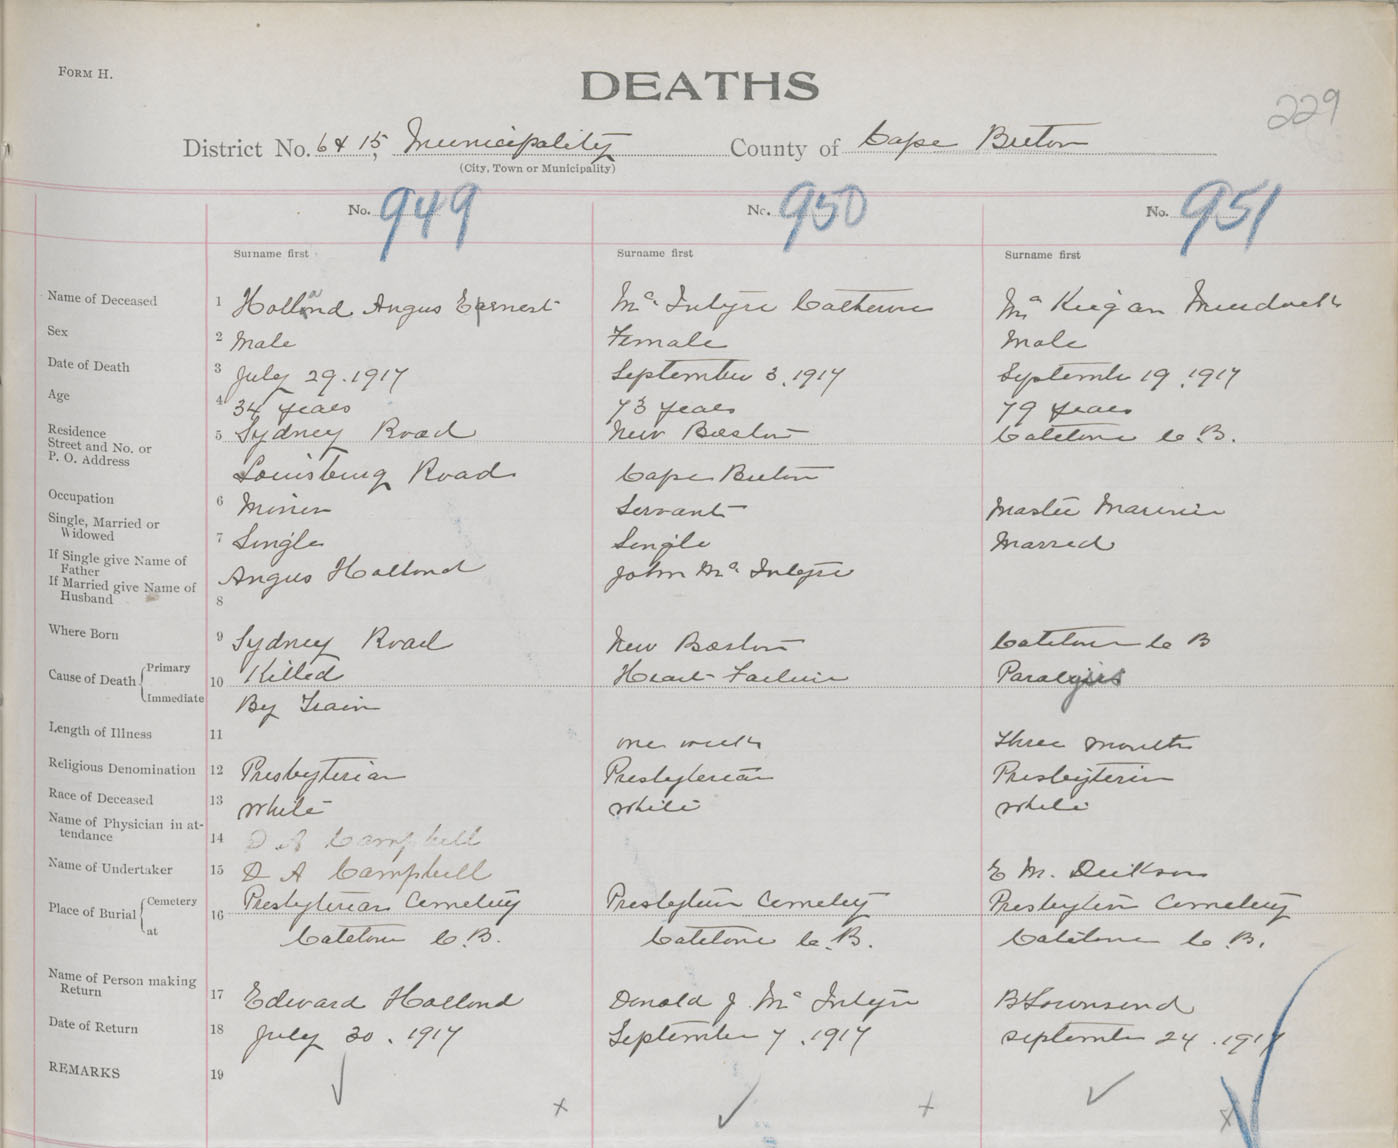 FORM H.
DEATHS
229
District No. 6 & 15, Municipality County of Cape Breton
(City, Town or Municipality)
No. 949 No. 950 No. 951
Surname first Surname first Surname first
Name of Deceased 1 Holland Angus Earnest Mc Intyre Catherine Mc Keigan Murdock
Sex 2 Male Female Male
Date of Death 3 July 29. 1917 September 3, 1917 September 19, 1917
Age 4 34 years 73 years 79 years
Residence Street and No. or P. O. Address 5 Sydney Road New Boston Catalone C. B.
Louisburg Road Cape Breton
Occupation 6 Miner Servant Master Mariner
Single, Married or Widowed 7 Single Single Married
If Single give Name of Father Angus Holland John Mc Intyre
If Married give Name of Husband 8
Where Born 9 Sydney Road New Boston Catalone C B
Cause of Death Primary 10 Killed Heart Failure Paralysis
Immediate By Train
Length of Illness 11 one week three months
Religious Denomination 12 Presbyterian Presbyterian Presbyterian
Race of Deceased 13 White White White
Name of Physician in attendance 14 D A Campbell
Name of Undertaker 15 D A Campbell E M. Dickson
Place of Burial Cemetery 16 Presbyterian Cemetery Presbyterian Cemetery Presbyterian Cemetery
at Catalone C. B. Catalone C. B. Catalone C. B.
Name of Person making Return 17 Edward Holland Donald J Mc Intyre B Townsend
Date of Return 18 July 30. 1917 September 7, 1917 September 24. 1917
REMARKS 19